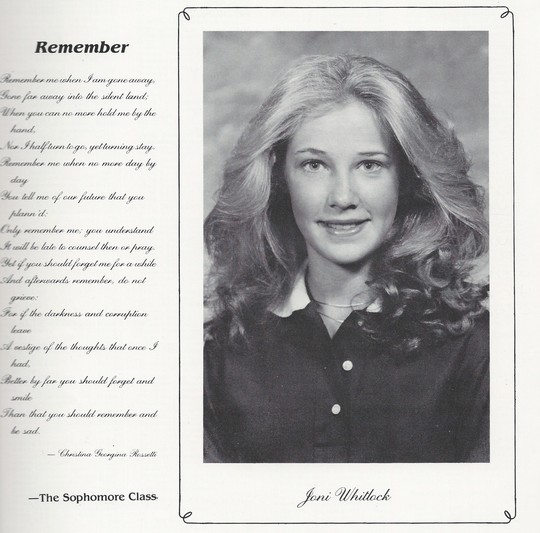 Remember
Remember me when I am gone away,
Gone far away into the silent land;
When you can no more hold me by the
hand,
Nor I half turn to go, yet turning stay.
Remember me when no more day by
day
You tell me of our future that you
plann'd:
Only remember me; you understand
It will be late to counsel then or pray.
Yet if you should forget me for a while
And afterwards remember, do not
grieve:
For if the darkness and corruption
leave
A vestige of the thoughts that once I
had,
Better by far you should forget and
smile
Than that you should remember and
be sad.
— Christina Georgina Rossetti
—The Sophomore Class
Joni Whitlock